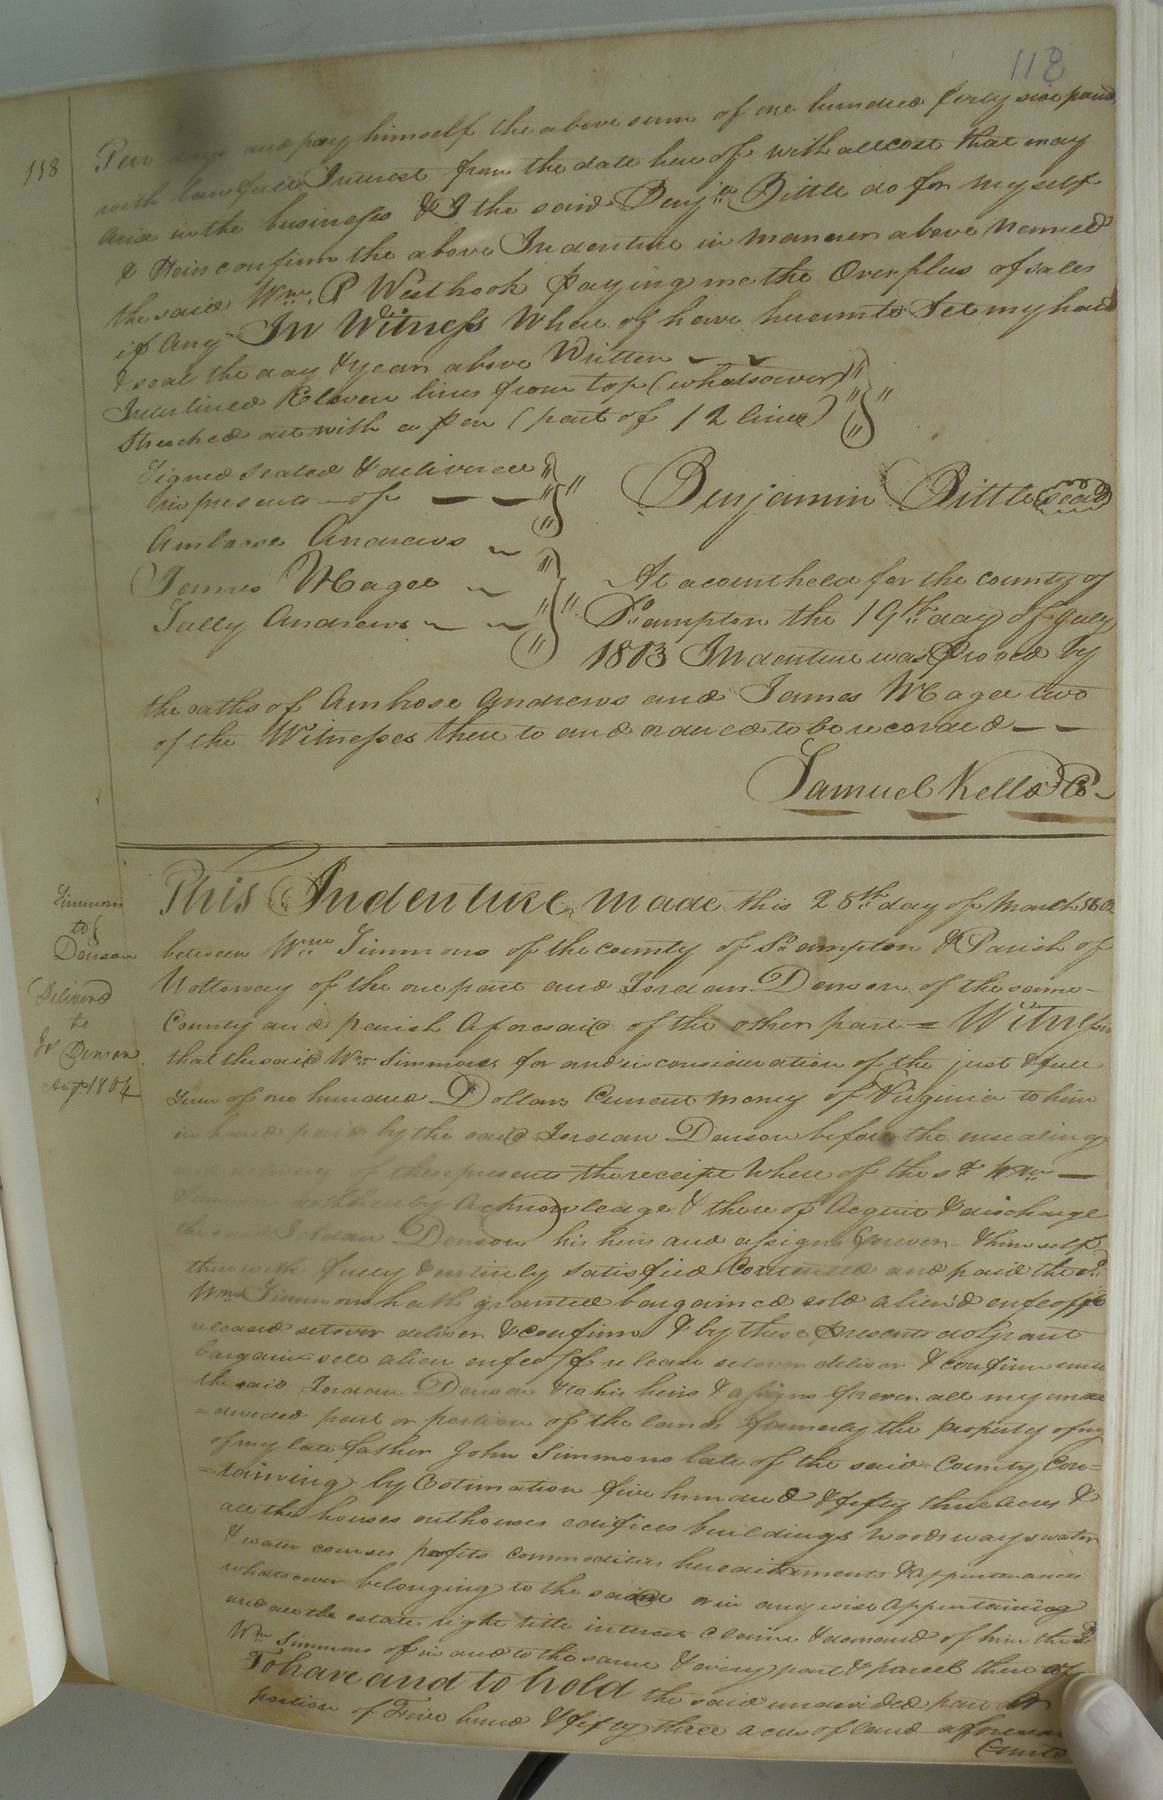 118
118
Ten days and pay himself the above sum of one hundred forty six pound
with lawfull Interest from the date here of with all cost that may
arise in the business & I the said Benja Bittle do for myself
& Heirs confirm the above Indenture in manner above named
the said Wm. P Westbrook paying me the Over plus of sales
if Any In Witness Where of have hereunto Set my hand
& seal the day & year above Written
Interlined Eleven lines from top (whatsoever)
Streached out with a pen (part of 12 lines)
Signed Sealed & delivered
in presents of
Benjamin Bittle seal
Ambrose Andrews
James Magee
Tully Andrews
At a court held for the county of
So ampton the 19th day of July
1803 Indenture was Proved by
the oaths of Ambrose Andrews and James Magee two
of the Witnesses there to and ordered to be recorded
Samuel Kello C
Simmons
to
Denson
Delivered
to
Jo Denson
Augt 1804
This Indenture made this 28th day of March
between Wm Simmons of the county of So ampton & Parish of
Nottoway of the one part and Jordan Denson of the same
County and parish Aforesaid of the other part = Witness
that the said Wm Simmons for and in consideration of the just & full
Sum of one hundred Dollars Current money of Virginia to him
in hand paid by the said Jordan Denson before the ensealing
and delivery of these presents the receipt Where of the sd Wm
Simmons doth hereby Acknowledge & there of Acquit & discharge
the said Jordan Denson his heirs and assigns forever & himself
therewith fully & entirely satisfied Contented and paid the sd
Wm Simmons hath granted bargained sold alien'd enfeoff'd
released setover deliver & confirm & by these presents do Grant
bargain sell alien enfeoff release setover deliver & confirm unto
the said Jordan Denson & to his heirs & assigns forever all my unde
=devided part or portion of the land formerly the property of my
of my late father John Simmons late of the said County Con=
=taining by Estimation five hundred & fifty three acres &
all the houses outhouses edifices buildings woods ways water
& water courses profits commodities hereditaments & Appurtenances
whatsoever belonging to the same or in any wise Appertaining
and all the estate right title interest Claim & demand of him the sd
Wm Simmons of in and to the same & every part & parcel there of
To have and to hold the said undevided part or
portion of Five hund & fifty three acres of land aforesaid